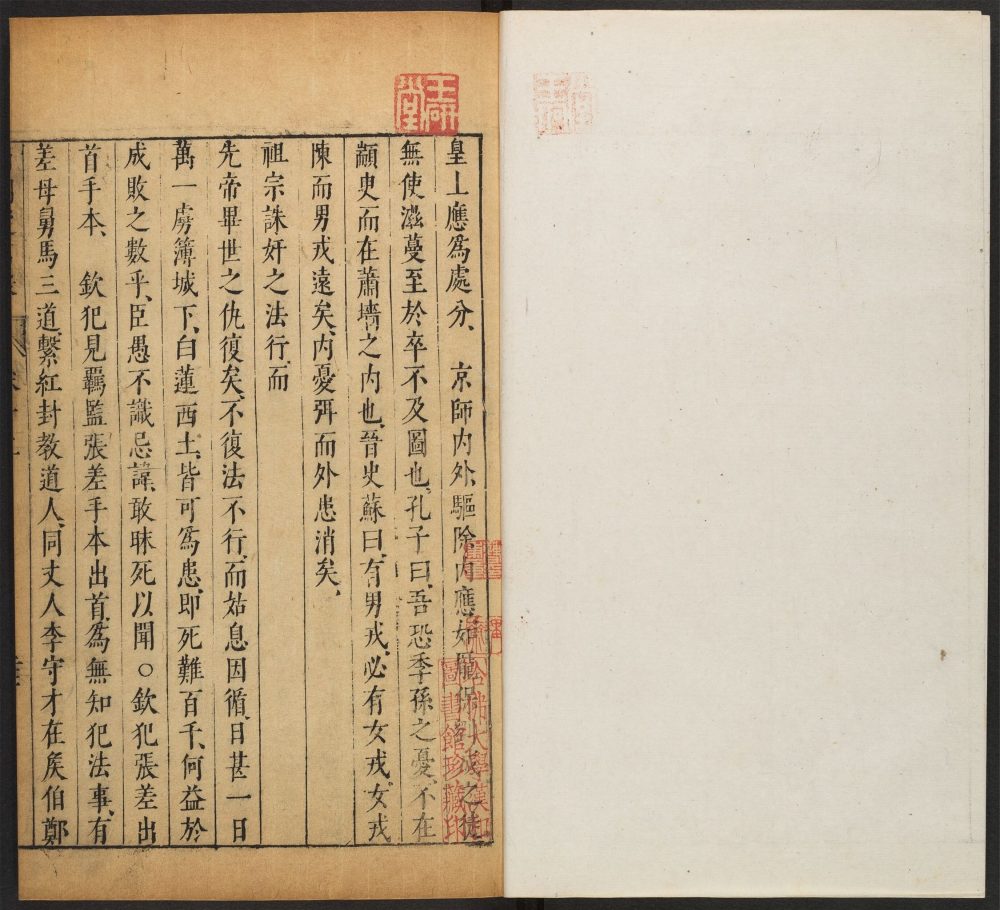 皇上應爲處分、　京師內外、驅除內應、如龐保劉成之徒
無使滋蔓、至於卒不及圖也、孔子曰、吾恐季孫之憂、不在
顓臾而在蕭墻之內也、晉史蘇曰、有男戎、必有女戎、女戎
陳而男戎遠矣、內憂弭而外患消矣、
祖宗誅奸之法行、而
先帝畢世之仇復矣、不復法不行、而姑息因循、日甚一日
萬一虜簿城下、白蓮西土、皆可爲患、卽死難百千、何益於
成敗之數乎、臣愚不識忌諱、敢昧死以聞○欽犯張差出
首手本、　欽犯見羈監張差手本出首、爲無知犯法事、有
差母舅馬三道、繫紅封教道人、同丈人李守才在矦伯鄭
哈佛大學漢和
圖書館珍藏印